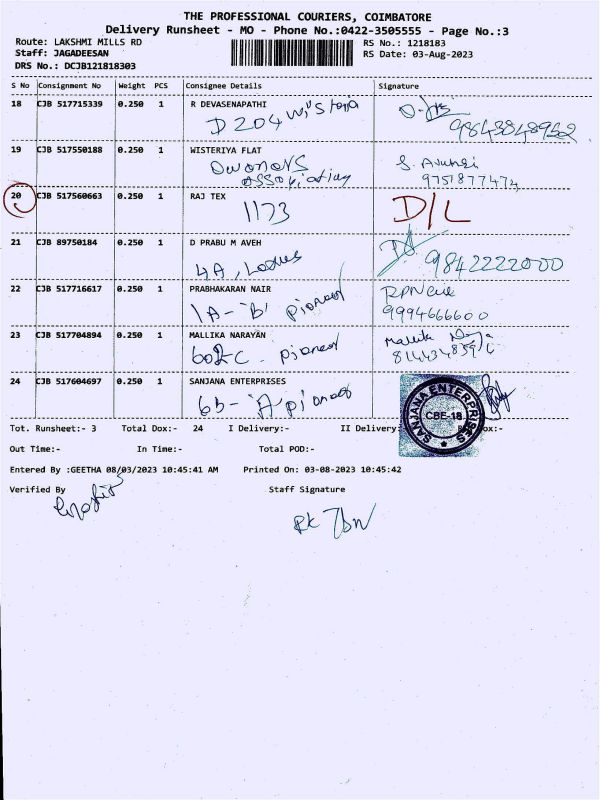 THE PROFESSIONAL COURIERS, COIMBATORE
Delivery Runsheet - MO - Phone No.:0422-3505555 - Page No.:3
Route: LAKSHMI MILLS RD RS No.: 1218183
Staff: JAGADEESAN RS Date: 03-Aug-2023
DRS No.: DCJB121818303
S No Consignment No Weight PCS Consignee Details Signature
18 CJB 517715339 0.250 1 R DEVASENAPATHI
D 204
9843848952
19 CJB 517550188 0.250 1 WISTERIYA FLAT
Owoners
association
9751877474
20 CJB 517560663 0.250 1 RAJ TEX
1173 D/L
21 CJB 89750184 0.250 1 D PRABU M AVEH
4A, 9842222000
22 CJB 517716617 0.250 1 PRABHAKARAN NAIR
1A-'B' pioneer
9994666600
23 CJB 517704894 0.250 1 MALLIKA NARAYAN
602C. pioneer
24 CJB 517604697 0.250 1 SANJANA ENTERPRISES
6b-'A' pioneer
SANJANA ENTERPRISES
CBE-18
Tot. Runsheet:- 3 Total Dox:- 24 I Delivery:- II Delivery:
Out Time:- In Time:- Total POD:-
Entered By :GEETHA 08/03/2023 10:45:41 AM Printed On: 03-08-2023 10:45:42
Verified By Staff Signature